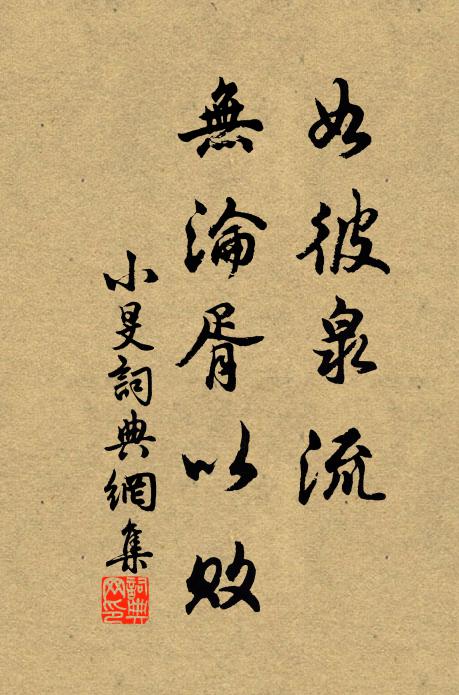 如彼泉流
無淪胥以敗
小旻詞典網集
詞典網印